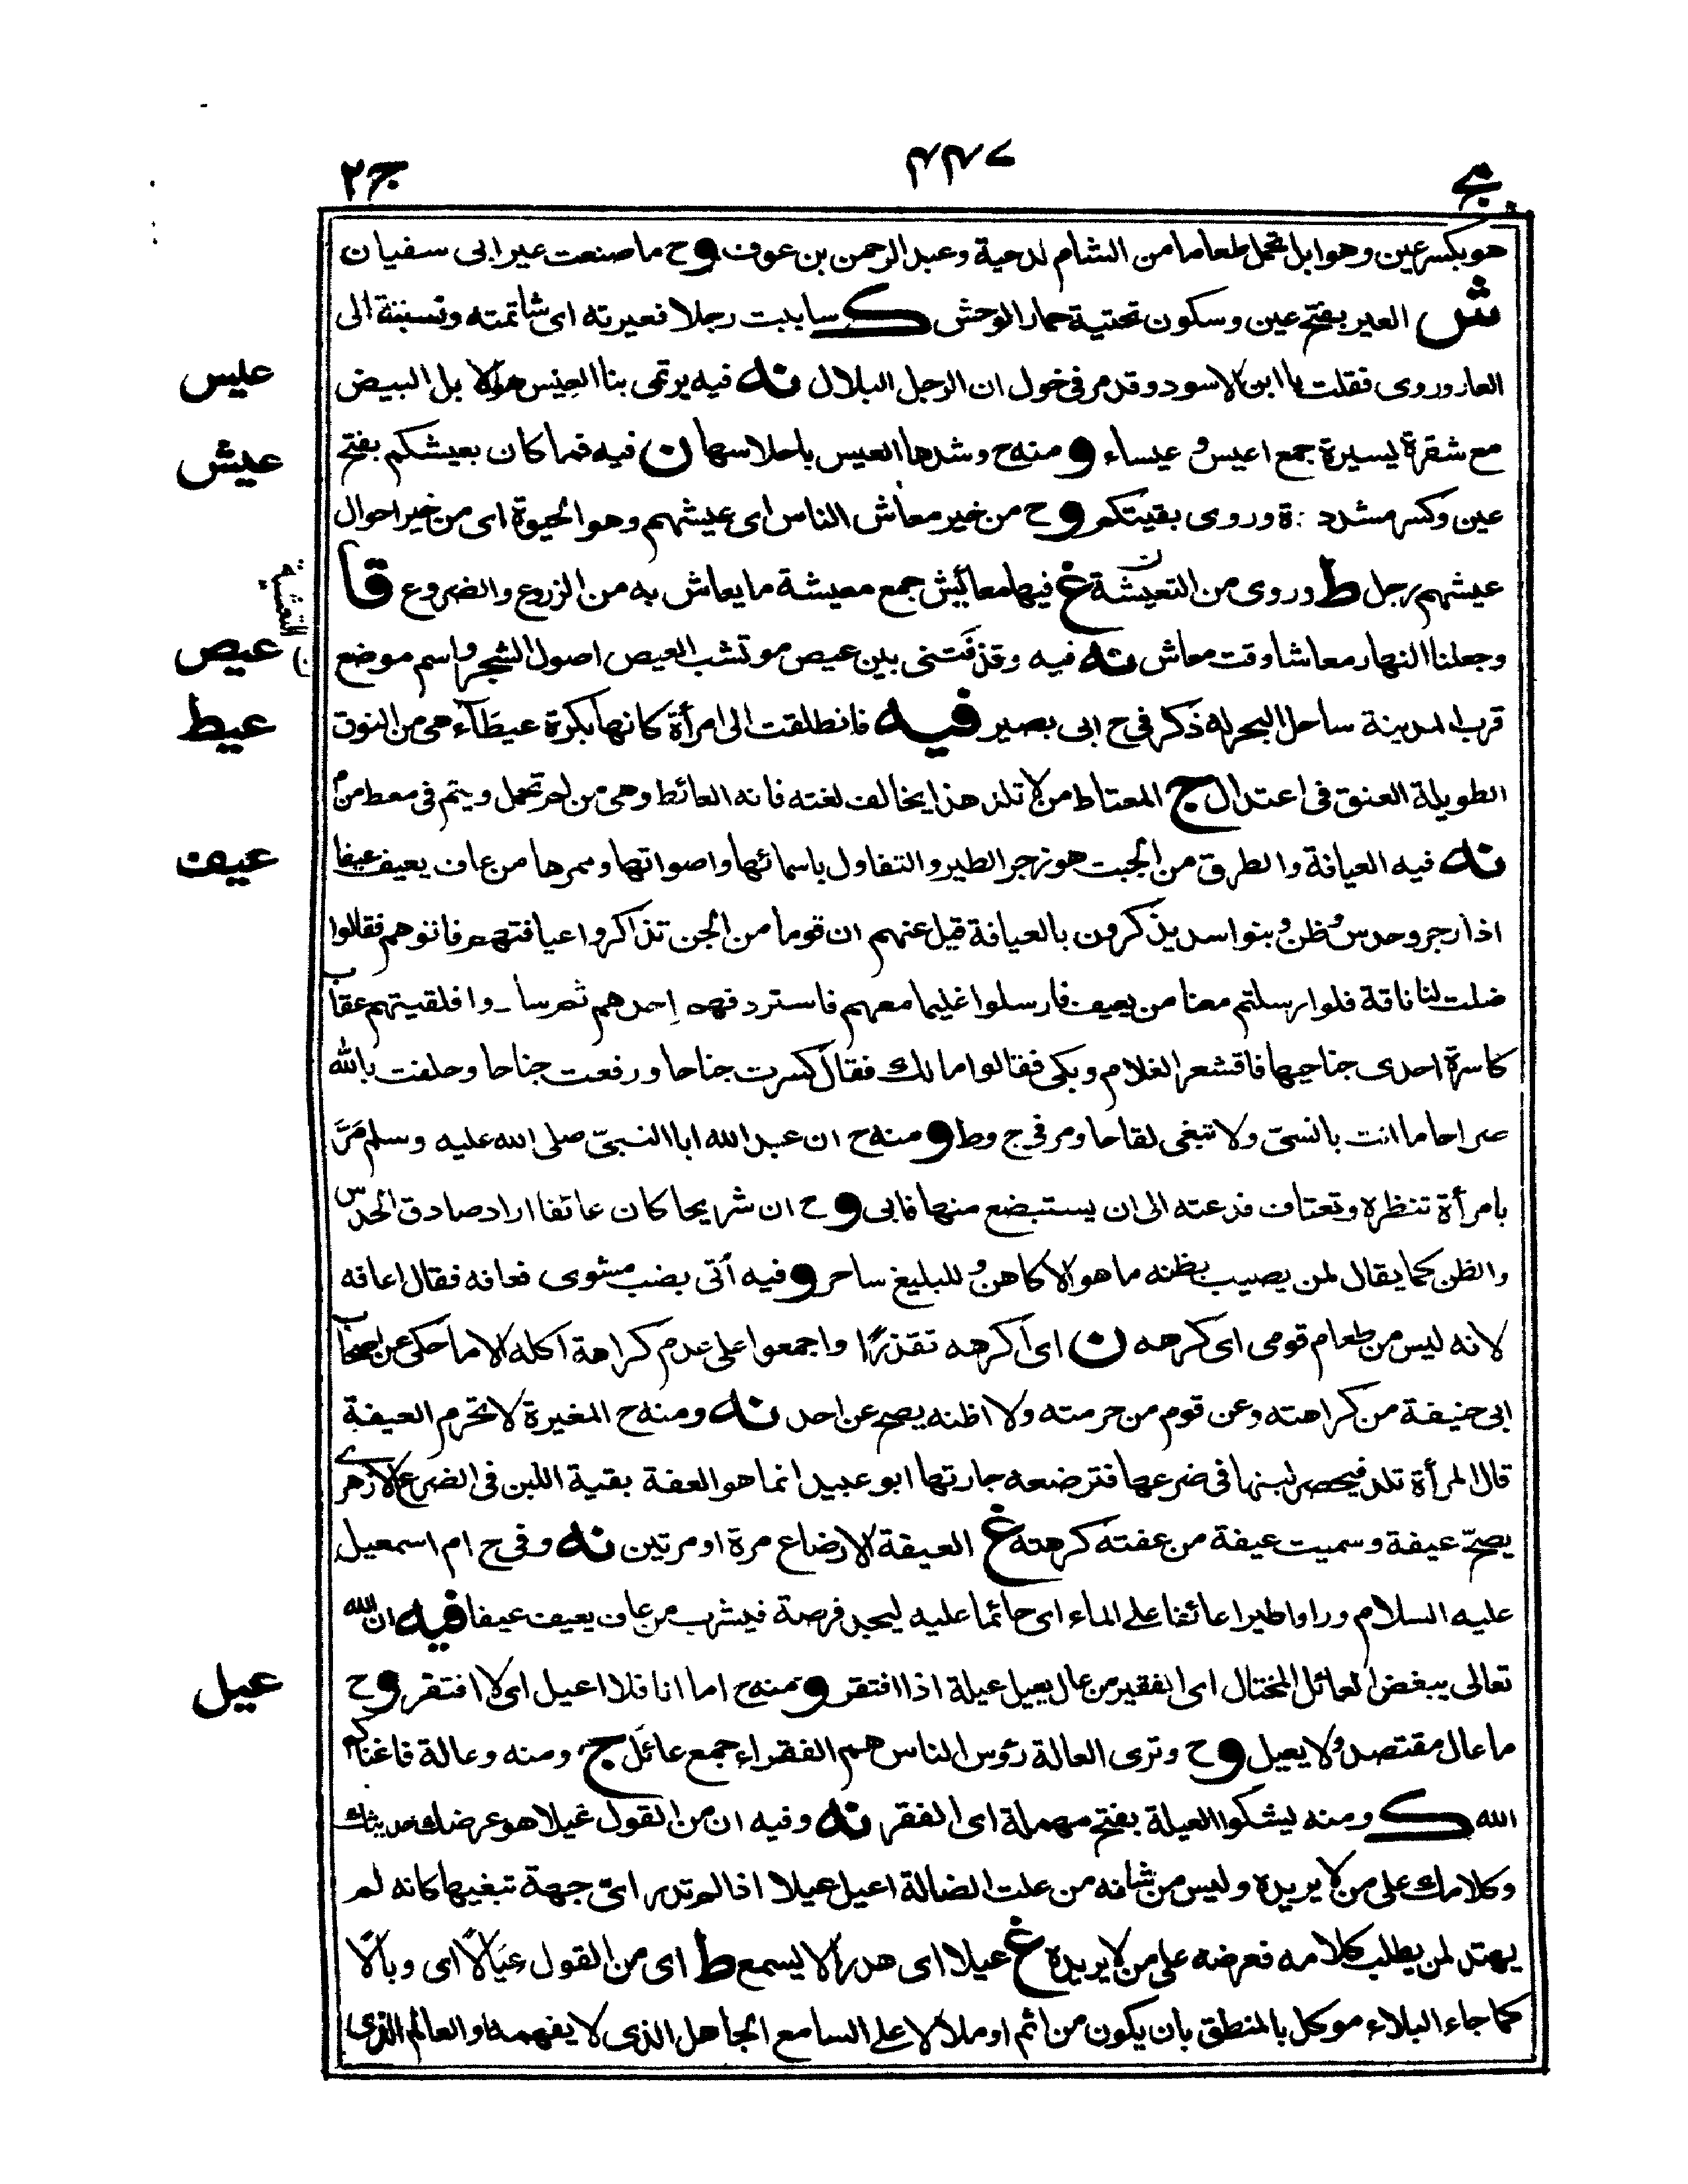 ج٢
٤٤٧
هو بكسر عين وهو ابل تحمل طعاما من الشام لدحية وعبد الرحمن بن عوف وح ما صنعت عير ابى سفيان
ش العير بفتح عين وسكون تحتية حمار الوحش ك ساببت رجلا فعيرته اى شاتمته ونسبته الى
العار وروى فقلت يا ابن الاسود وقد مر فى خول ان الرجل البلال نه فيه يرتمى بنا العيس هو الابل البيض
عيس
مع شقرة يسيرة جمع اعيس وعيساء ومنه ح وشدها العيس باحلاسها ن فيه فما كان بعيشكم بفتح
عيش
عين وكسر مشددة وروى بقيتكم وح من خير معاش الناس اى عيشهم وهو الحيوة اى من خير احوال
عيشهم رجل ط وروى من التعيشة غ فيها معائش جمع معيشة ما يعاش به من الزروع والضروع قا
وجعلنا النهار معاشا وقت معاش نه فيه وقذفتنى بين عيص مؤتشب العيص اصول الشجر واسم موضع
عيص
قرب المدينة ساحل البحر له ذكر فى ح ابى بصير فيه فانطلقت الى امرأة كانها بكرة عيطاء هى من النوق
عيط
الطويلة العنق فى اعتدال ج المعتاط من لا تلد هذا يخالف لغته فانه العائط وهى من لم تحمل ويتم فى معط من م
نه فيه العيافة والطرق من الجبت هو زجر الطير والتفاول باسمائها واصواتها وممرها من عاف يعيف عيفا
عيف
اذا زجر وحدس وظن وبنو اسد يذكرون بالعيافة قيل عنهم ان قوما من الجن تذاكروا عيافتهم فاتوهم فقالوا
ضلت لنا ناقة فلو ارسلتم معنا من يعيف فارسلوا غليما معهم فاستردفه احدهم ثم ساروا فلقيتهم عقاب
كاسرة احدى جناحيها فاقشعر الغلام وبكى فقالوا ما لك فقال كسرت جناحا ورفعت جناحا وحلفت بالله
صراحا ما انت بانسىّ ولا تبغى لقاحا ومر فى ج وط ومنه ح ان عبد الله ابا النبىّ صلى الله عليه وسلم مَرَّ
بامرأة تنظره وتعتاف فدعته الى ان يستبضع منها فابى وح ان شريحا كان عائفا اراد صادق الحدس
والظن كما يقال لمن يصيب بظنه ما هو الا كاهن وللبليغ ساحر وفيه أتى بضب مشوى فعافه فقال اعافه
لانه ليس من طعام قومى اى كرهه ن اى اكرهه تقذرًا واجمعوا على عدم كراهة اكله الا ما حكى عن اصحاب
ابى حنيفة من كراهته وعن قوم من حرمته ولا اظنه يصح عن احد نه ومنه ح المغيرة لا تحرم العيفة
قال المرأة تلد فيحصر لبنها فى ضرعها فترضعه جارتها ابو عبيد انما هو العفة بقية اللبن فى الضرع الازهرى
يصحّ عيفة وسميت عيفة من عفته كرهته غ العيفة الارضاع مرة او مرتين نه وفى ح ام اسمعيل
عليه السلام وراوا طيرا عائفا على الماء اى حائما عليه ليجد فرصة فيشرب من عاف يعيف عيفا فيه ان الله
تعالى يبغض العائل المختال اى الفقير من عال يعيل عيلة اذا افتقر ومنه ح اما انا فلا اعيل اى لا افتقر وح
عيل
ما عال مقتصد ولا يعيل وح وترى العالة رؤس الناس هم الفقراء جمع عائل ج ومنه وعالة فاغناكم
الله ك ومنه ليشكوا العيلة بفتح مهملة اى الفقر نه وفيه ان من القول عيلا هو عرضك حديثك
وكلامك على من لا يريده وليس من شانه من علت الضالة اعيل عيلا اذا لم تدر اىّ جهة تبغيها كانه لم
يهتد لمن يطلب كلامه فعرضه على من لا يريده غ عيلا اى هدرا لا يسمع ط اى من القول عيالًا اى وبالًا
كما جاء البلاء موكل بالمنطق بان يكون من اثم او ملالا على السامع الجاهل الذى لا يفهمه او العالم الذى